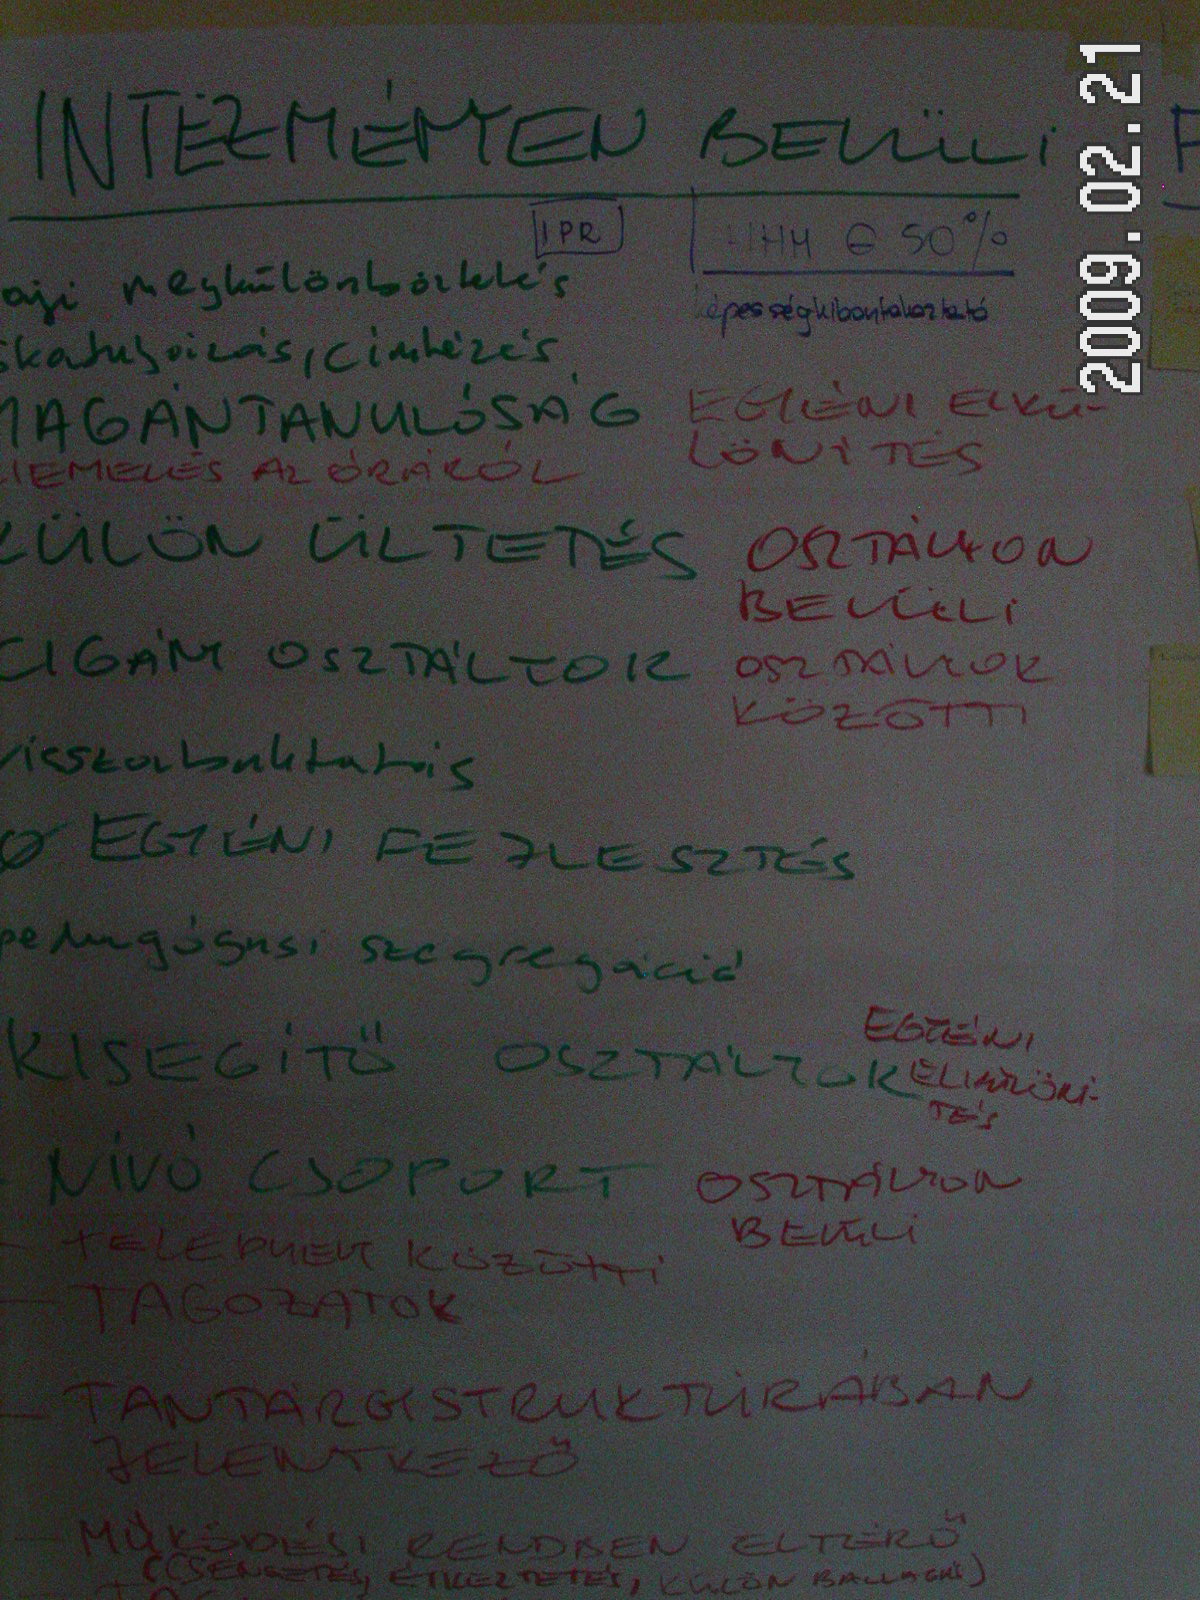 INTÉZMÉNYEN BELÜLI
IPR
HHH 50%
képességkibontakoztató
faji megkülönböztetés
skatulyázás, címkézés
MAGÁNTANULÓSÁG
EGYÉNI ELKÜ-
LÖNÍTÉS
KIEMELÉS AZ ÓRÁRÓL
KÜLÖN ÜLTETÉS
OSZTÁLYON
BELÜLI
CIGÁNY OSZTÁLYOK
OSZTÁLYOK
KÖZÖTTI
visszabuktatás
Ø EGYÉNI FEJLESZTÉS
pedagógusi szegregáció
KISEGÍTŐ OSZTÁLYOK
EGYÉNI
ELKÜLÖNÍ-
TÉS
- NÍVÓ CSOPORT
OSZTÁLYON
BELÜLI
- TELEPHELY KÖZÖTTI
- TAGOZATOK
- TANTÁRGYSTRUKTÚRÁBAN
JELENTKEZŐ
- MŰKÖDÉSI RENDBEN ELTÉRŐ
(CSENGETÉS, ÉTKEZTETÉS, KÜLÖN BALLAGÁS)
2009.02.21